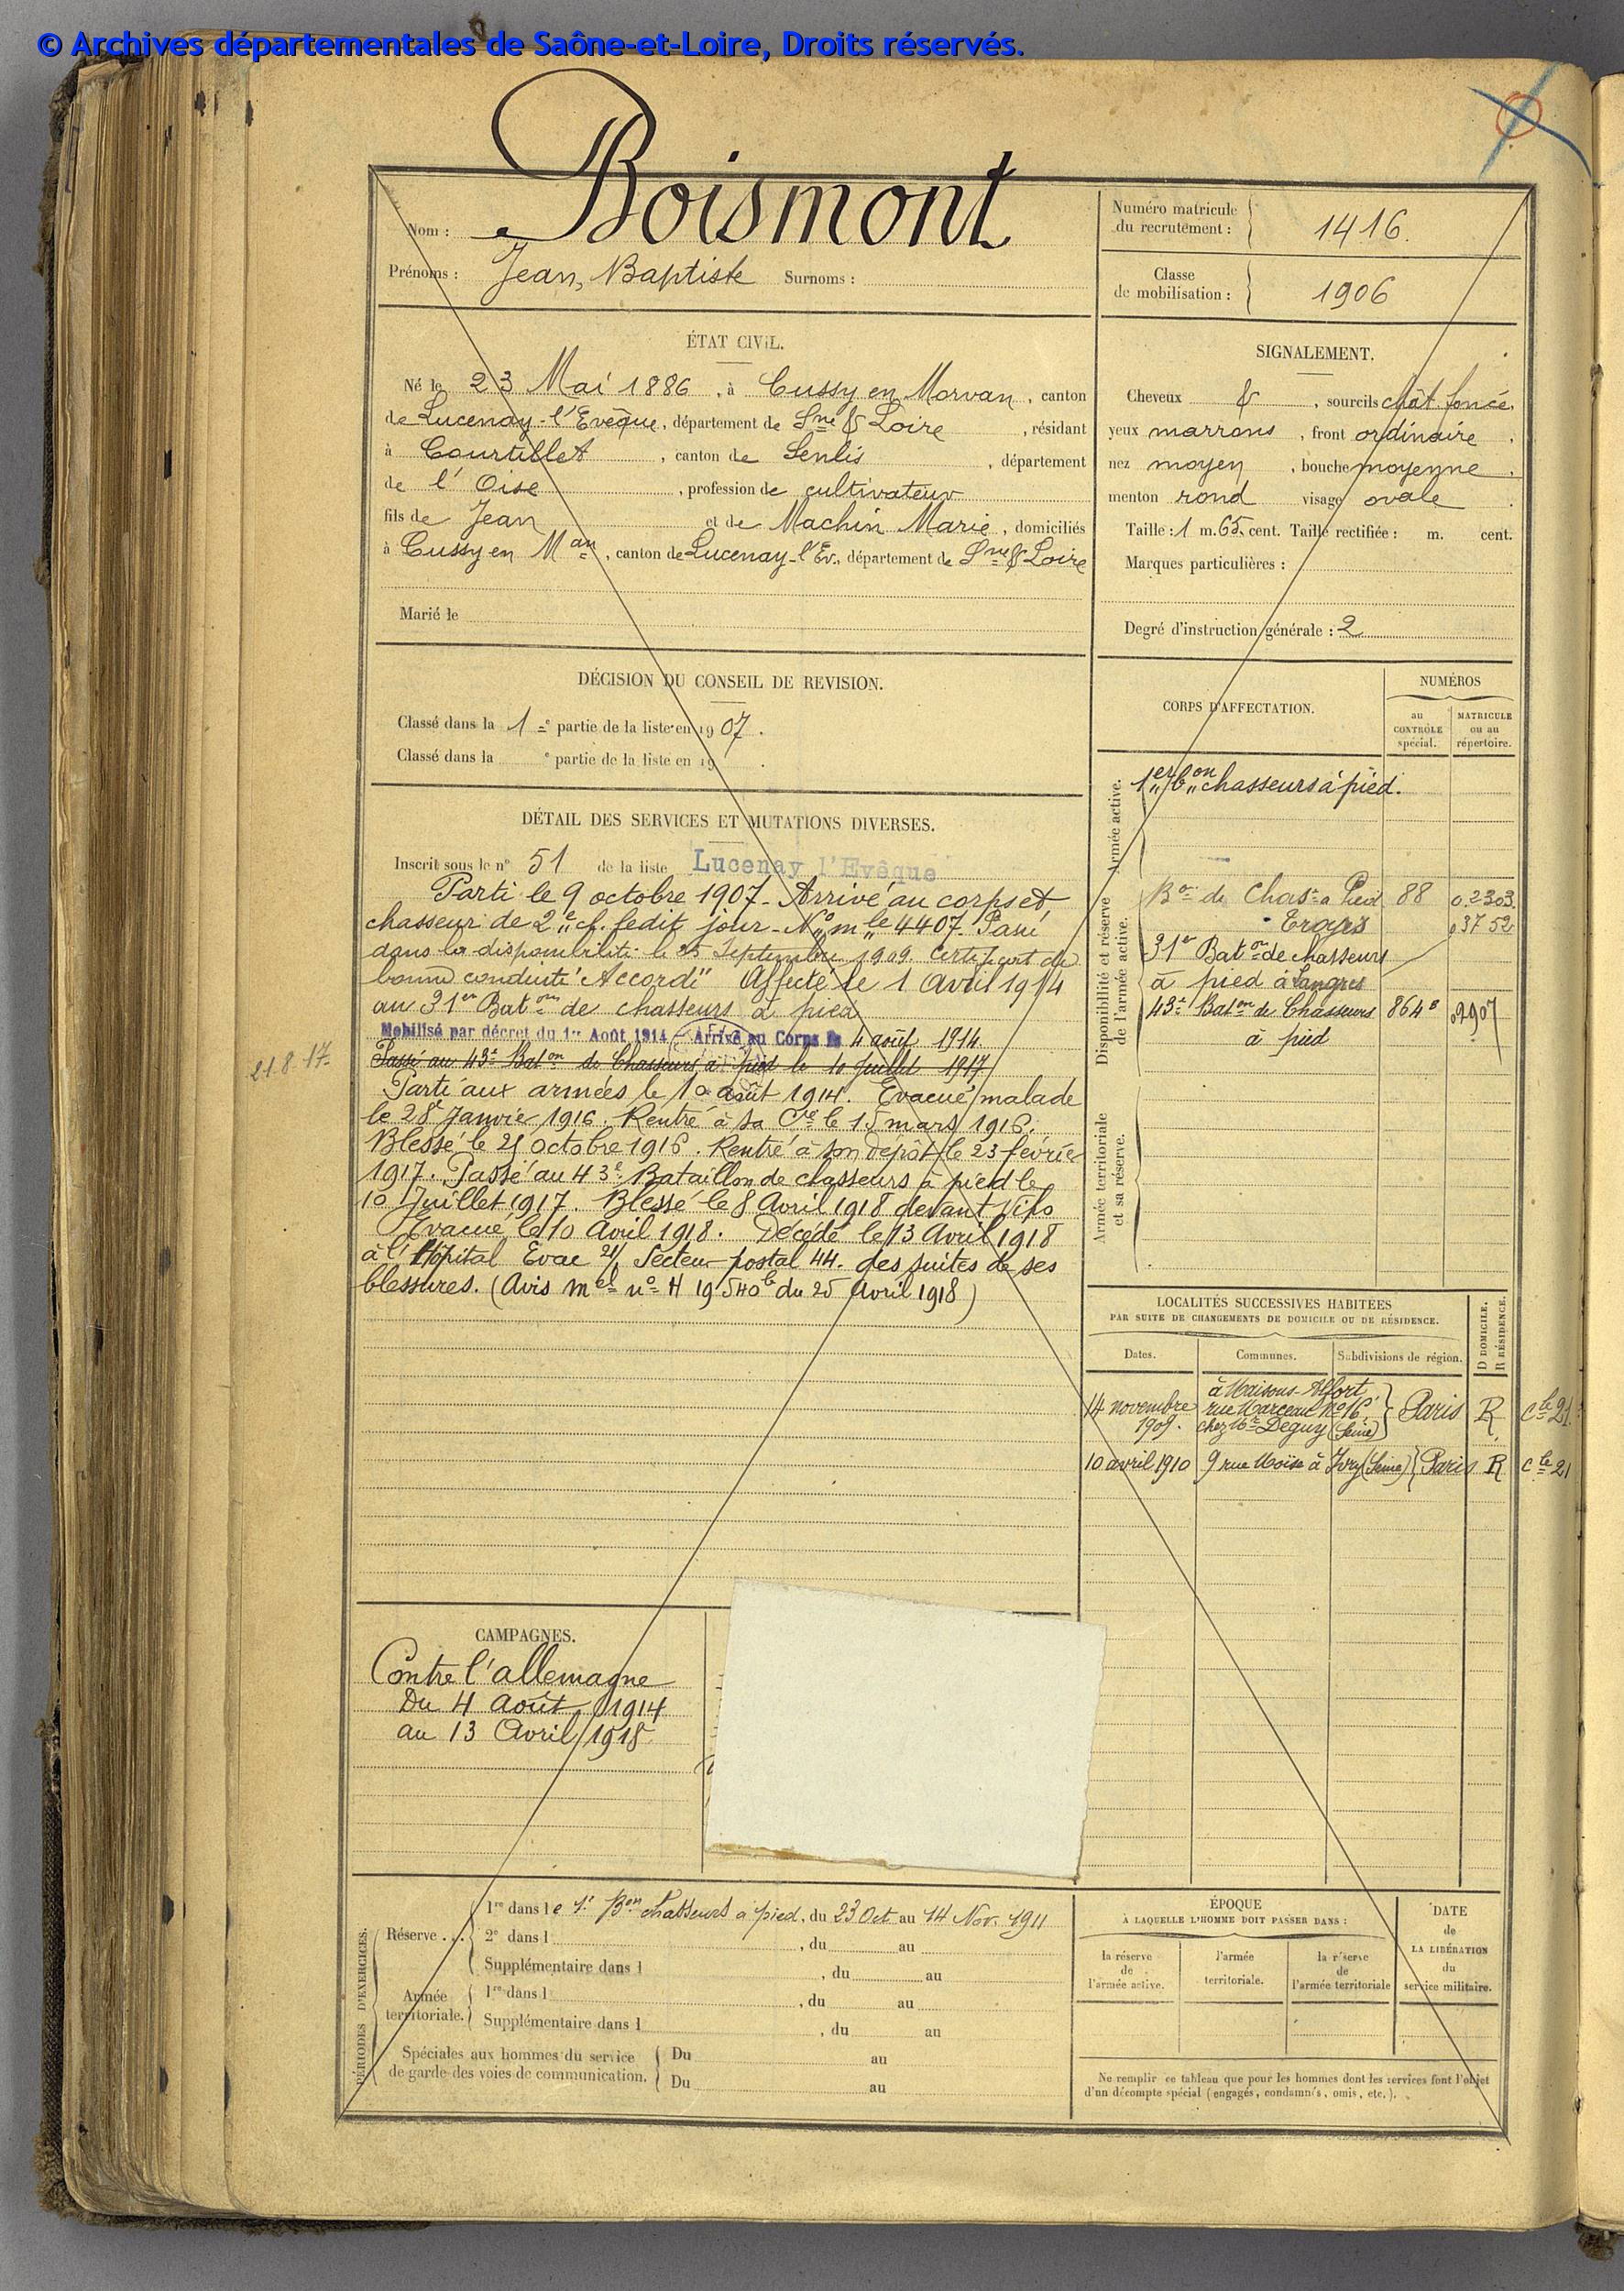 © Archives départementales de Saône-et-Loire, Droits réservés.
Nom : Boismont
Prénoms : Jean, Baptiste Surnoms :
Numéro matricule du recrutement : 1416.
Classe de mobilisation : 1906
ÉTAT CIVIL.
Né le 23 Mai 1886, à Cussy en Morvan, canton
de Lucenay-l'Evêque, département de Sne & Loire, résidant
à Courtillet, canton de Senlis, département
de l'Oise, profession de cultivateur
fils de Jean et de Machin Marie, domiciliés
à Cussy en Man, canton de Lucenay-l'Ev., département de Sne & Loire
Marié le
SIGNALEMENT.
Cheveux &, sourcils chât. foncé,
yeux marrons, front ordinaire,
nez moyen, bouche moyenne,
menton rond visage ovale.
Taille : 1 m. 65 cent. Taille rectifiée : m. cent.
Marques particulières :
Degré d'instruction générale : 2
DÉCISION DU CONSEIL DE REVISION.
Classé dans la 1e partie de la liste en 1907.
Classé dans la e partie de la liste en 19 .
DÉTAIL DES SERVICES ET MUTATIONS DIVERSES.
Inscrit sous le n° 51 de la liste Lucenay l'Evêque
Parti le 9 octobre 1907 - Arrivé au corps et
chasseur de 2e cl. ledit jour - No mle 4407. Passé
dans la disponibilité le 25 Septembre 1909. Certificat de
bonne conduite "Accordé" Affecté le 1 Avril 1914
au 31er Baton de chasseurs à pied
Mobilisé par décret du 1er Août 1914 - Arrivé au Corps le 4 août 1914.
21.8.17.
Passé au 43e Baton de Chasseurs à pied le 10 Juillet 1917
Parti aux armées le 10 août 1914. Evacué malade
le 28 Janvie 1916. Rentré à sa Cie le 15 mars 1916.
Blessé le 25 octobre 1916. Rentré à son dépôt le 23 févrie
1917. Passé au 43e Bataillon de chasseurs à pied le
10 Juillet 1917. Blessé le 8 Avril 1918 devant
Evacué le 10 Avril 1918. Décédé le 13 Avril 1918
à l'Hôpital Evac Secteur postal 44. des suites de ses
blessures. (Avis mel no H 19540 du 25 Avril 1918)
CORPS D'AFFECTATION.
NUMÉROS
au CONTRÔLE spécial.
MATRICULE ou au répertoire.
Armée active.
1er bon chasseurs à pied.
Disponibilité et réserve de l'armée active.
Bon de Chas. à Pied 88 0.2303.
Troyes 03752
31er Baton de chasseurs
à pied à Langres
43e Baton de Chasseurs 864B 02907
à pied
Armée territoriale et sa réserve.
LOCALITÉS SUCCESSIVES HABITÉES
PAR SUITE DE CHANGEMENTS DE DOMICILE OU DE RÉSIDENCE.
Dates. Communes. Subdivisions de région. D DOMICILE. R RÉSIDENCE.
14 novembre 1909. à Maisons-Alfort, rue Marceau No 16, chez Mr Deguy (Seine) } Paris R cle 21
10 avril 1910 9 rue Moïse à Ivry (Seine) } Paris R cle 21
CAMPAGNES.
Contre l'allemagne
Du 4 Août 1914
au 13 Avril 1918
PÉRIODES D'EXERCICES.
Réserve . . .
1re dans le 1er Bon chasseurs à pied, du 23 Oct. au 14 Nov. 1911
2e dans l , du au
Supplémentaire dans l , du au
Armée territoriale.
1re dans l , du au
Supplémentaire dans l , du au
Spéciales aux hommes du service
de garde des voies de communication.
Du au
Du au
ÉPOQUE
À LAQUELLE L'HOMME DOIT PASSER DANS :
la réserve de l'armée active.
l'armée territoriale.
la réserve de l'armée territoriale
DATE de LA LIBÉRATION du service militaire.
Ne remplir ce tableau que pour les hommes dont les services font l'objet
d'un décompte spécial (engagés, condamnés, omis, etc.).